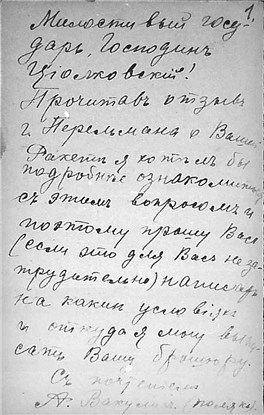 1.
Милостивый госу-
дарь, Господинъ
Ціолковскій!
Прочитавъ отзывъ
г. Перельмана о Вашей
Ракетѣ я хотѣлъ бы
подробнѣе ознакомиться
съ этимъ вопросомъ и
поэтому прошу Васъ
(если это для Васъ не за-
труднительно) написать
на какихъ условіяхъ
и откуда я могу выпи-
сать Вашу брошюру.
Съ почтеніемъ
А.